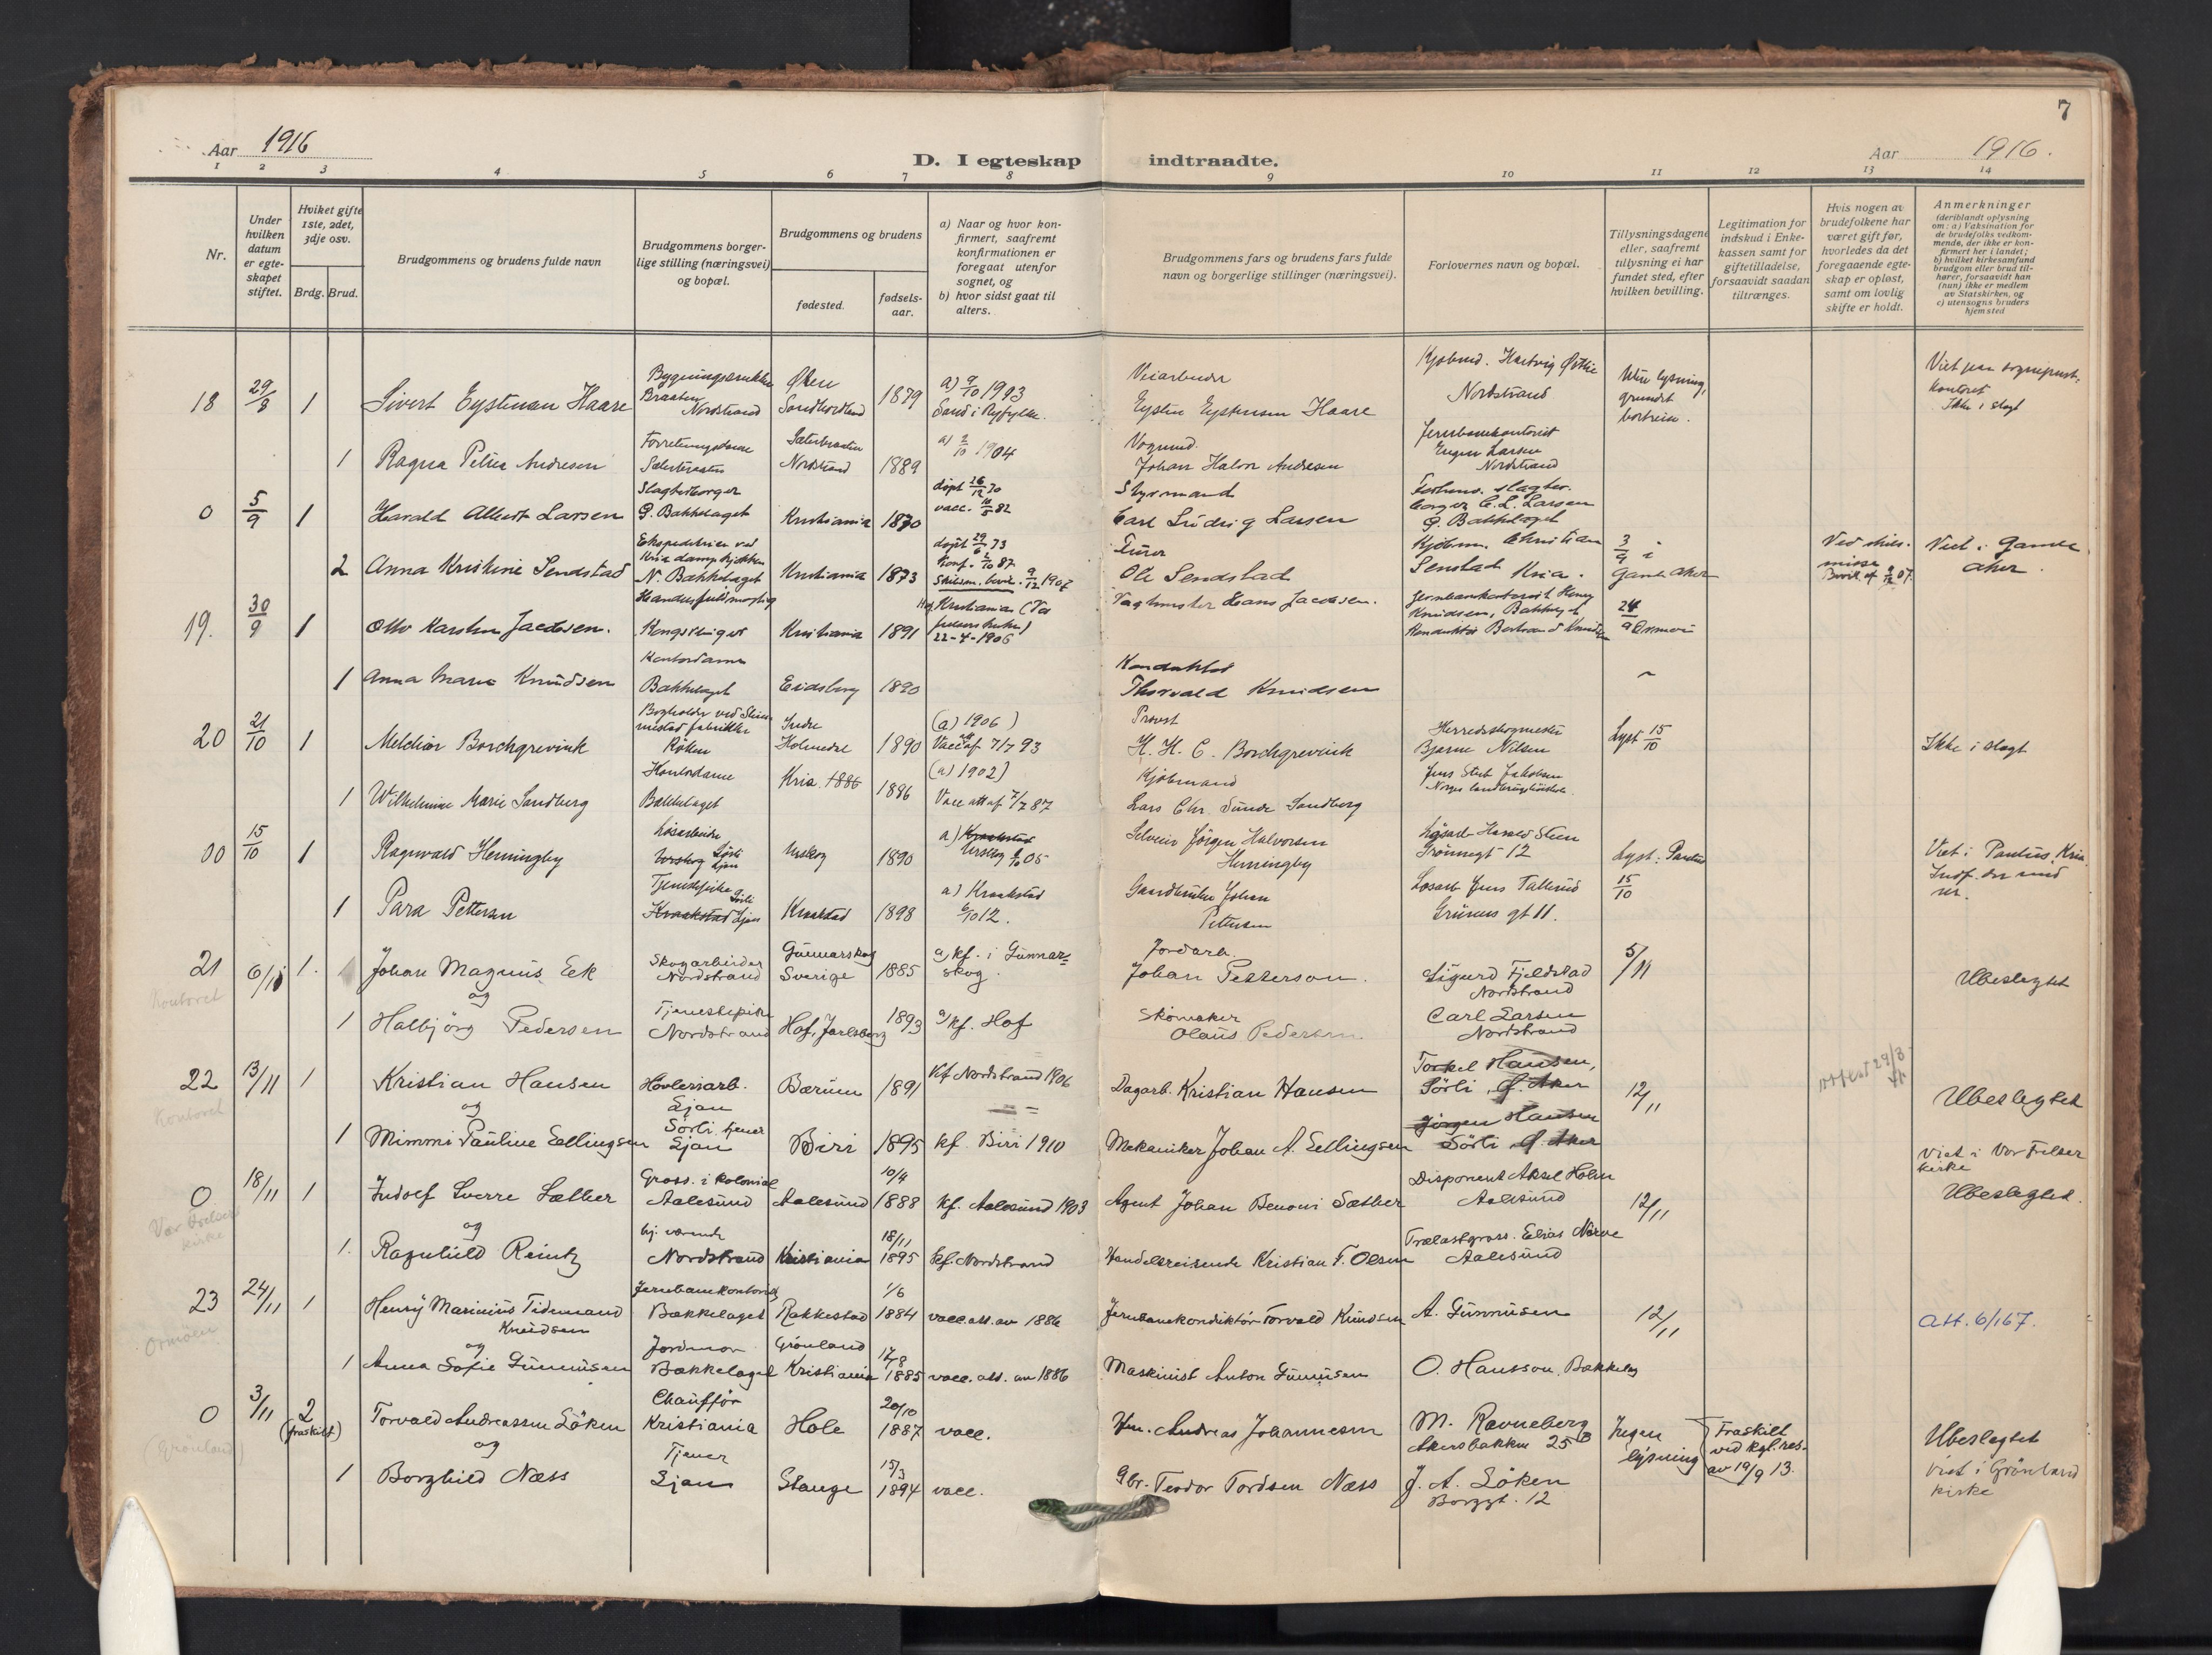 7
Aar 1916
D. I egteskap indtraadte.
Aar 1916.
1 2 3 4 5 6 7 8 9 10 11 12 13 14
Nr.
Under hvilken datum er egteskapet stiftet.
Hviket gifte 1ste, 2det, 3dje osv.
Brdg. Brud.
Brudgommens og brudens fulde navn
Brudgommens borgerlige stilling (næringsvei) og bopæl.
Brudgommens og brudens
fødested.
fødselsaar.
a) Naar og hvor konfirmert, saafremt konfirmationen er foregaat utenfor sognet, og
b) hvor sidst gaat til alters.
Brudgommens fars og brudens fars fulde navn og borgerlige stillinger (næringsvei).
Forlovernes navn og bopæl.
Tillysningsdagene eller, saafremt tillysning ei har fundet sted, efter hvilken bevilling.
Legitimation for indskud i Enkekassen samt for giftetilladelse, forsaavidt saadan tiltrænges.
Hvis nogen av brudefolkene har været gift før, hvorledes da det foregaaende egteskap er opløst, samt om lovlig skifte er holdt.
Anmerkninger
(deriblandt oplysning om: a) Vaksination for de brudefolks vedkommende, der ikke er konfirmert her i landet;
b) hvilket kirkesamfund brudgom eller brud tilhører, forsaavidt han (hun) ikke er medlem av Statskirken, og
c) utensogns bruders hjemsted
18 29/8 1 Sivert Eystman Haare
Braaten Nordstrand
1879
a) 9/10 1993
Sand i Ryfylke.
Veiarbeider
Eystein Eystensen Haare
Kjøbmd. Hartvig
Nordstrand
Uten lysning, grundet bortreise.
Ikke i slegt
1 Ragna Petrea Andresen
Nordstrand 1889
a) 2/10 1904
Johan Halvor Andresen
Jernbanekontorist
Eugen Larsen
Nordstrand
0 5/9 1 Harald Albert Larsen
Slagterborger
Ø. Bækkelaget
Kristiania 1870
døpt 26/12 70
vacc. 10/5 82
Styrmand
Carl Ludvig Larsen
C. L. Larsen
Ø. Bækkelaget
2 Anna Kristine Sendstad
N. Bækkelaget
Kristiania 1873
døpt 29/6 73
Konf. 2/10 87
Ole Sendstad
Kjøbm. Christian
Senstad Kria.
3/9 i
Gamle Aker
Viet i Gamle
Aker.
19. 30/9 1 Otto Karsten Jacobsen.
Kongsvinger
Kristiania 1891
22-4-1906
Vagtmester Hans Jacobsen.
Jernbanekontorist Henry
Knudsen, Bækkelaget
24/9 Ormøen
1 Anna Marie Knudsen
Kontordame
Bækkelaget
Eidsberg 1890
Konduktør
Thorvald Knudsen
20 21/10 1 Melchior Borchgrevink
Røken
Indre
Holmedal
1890
(a) 1906)
Vacc. af 7/7 93
Provst
H. H. C. Borchgrevink
Herredsskogmester
Bjarne Nilsen
Lyst 15/10
Ikke i slegt
1 Wilhelmine Marie Sandberg
Kontordame
Bækkelaget
Kria. 1886
1886
(a) 1902)
Vacc att af 7/7 87
Kjøbmand
Lars Chr. Sunde Sandberg
Jens Stub Jakobsen
00 15/10 1 Ragnvald Hemingby
Løsarbeider
Urskog
1890
a) Kraakstad
Urskog 05
Selveier Jørgen Halvorsen
Hemingby
Løsarb. Harald Steen
Grønnegt 12
Lyst: Paulus
15/10
Viet i Paulus, Kria
1 Para Pettersen
Tjenestepike
Kraakstad 1898
a) Kraakstad
6/10 12.
Gaardbruker Johan
Pettersen
Løsarb Jens Tallerud
Grüners gt 11.
21 6/11 1. Johan Magnus Eek
og
Kontoret
Skogarbeider
Nordstrand
Gunnarskog
Sverige
1885
a) kf. i Gunnarskog.
Jordarb.
Johan Petterson.
Sigurd Fjeldstad
Nordstrand
5/11
Ubeslegtet
1 Halbjörg Pedersen
Tjenestepike
Nordstrand
Hof, Jarlsberg
1893
a) kf. Hof
Skomaker
Olaus Pedersen
Carl Larsen
Nordstrand
22 13/11 1 Kristian Hansen
og
Kontoret
Hövleriarb.
Ljan
Bærum 1891
kf Nordstrand 1906
Dagarb. Kristian Hansen
Torkel Hansen,
Sörli, Ø. Aker
12/11
attest 29/3
Ubeslegtet
1 Mimmi Pauline Eellingsen
Sörli, tjener
Ljan
Biri 1895
kf. Biri 1910
Mekaniker Johan A. Eellingsen
Jörgen Hansen
Sörli Ø. Aker
0 18/11 1 Indolf Sverre Sæther
og
Vor Frelsers
kirke
Gross. i kolonial
Aalesund
Aalesund
10/4
1888
kf. Aalesund 1903
Agent Johan Benoni Sæther
Disponent Aksel Holm
Aalesund
12/11
Viet i Vor Frelser
kirke
Ubeslegtet.
1. Ragnhild Reintz
hj. værende
Nordstrand
Kristiania
18/11
1895
kf. Nordstrand
Handelsreisende Kristian F. Olsen
Trælastgross. Elias Nörve
Aalesund
23 24/11 1 Henry Marinius Tidemand
Knudsen
og
Ormöen
Jernbanekontorist
Bækkelaget
Rakkestad
1/6
1884
vacc. att. av 1886
Jernbanekonduktör Torvald Knudsen
A. Gummusen
12/11
Att. 6/1 67.
1 Anna Sofie Gummusen
Jordmor
Bækkelaget
Grönland
Kristiania
17/8
1885
vacc. att. av 1886
Maskinist Anton Gummusen
O. Hansson, Bækkelag
0 3/11 2
(fraskilt)
(Grönland)
Torvald Andreassen Löken
og
Chaufför
Kristiania
Hole
20/10
1887
vacc.
Andreas Johannesen
M. Ravneberg
Akersbakken 25B
Ingen
lysning
Fraskilt
ved kgl. res.
av 19/9 13.
Ubeslegtet
viet i Grönland
kirke
1 Borghild Næss
Tjener
Ljan
Stange
15/3
1894
vacc.
Gbr. Teodor Tordsen Næss
J. A. Löken
Borggt. 12